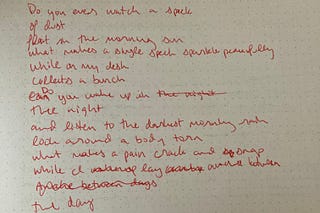 Do you ever watch a speck
of dust
float in the morning sun
what makes a single speck sparkle peacefully
while on my desk
collects a bunch
Do you wake up in the night
the night
and listen to the darkest morning
around a body torn
what makes a pain crack and snap
while I lay between
between days
the day